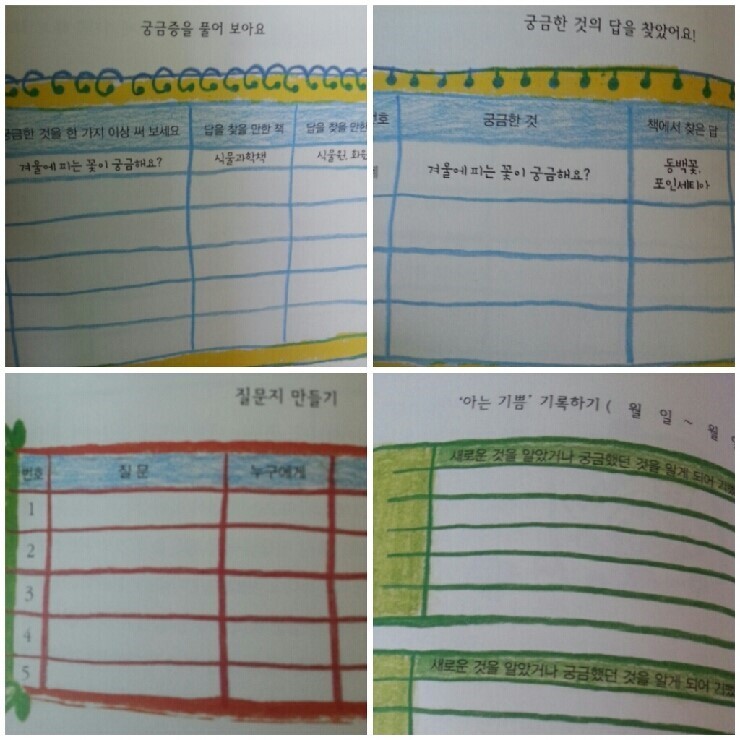 궁금증을 풀어 보아요
궁금한 것을 한 가지 이상 써 보세요 답을 찾을 만한 책 답을 찾을 만한
겨울에 피는 꽃이 궁금해요? 식물과학책 식물원, 화원
궁금한 것의 답을 찾았어요!
번호 궁금한 것 책에서 찾은 답
겨울에 피는 꽃이 궁금해요? 동백꽃,
포인세티아
질문지 만들기
번호 질문 누구에게
1
2
3
4
5
'아는 기쁨' 기록하기 ( 월 일 ~ 월
새로운 것을 알았거나 궁금했던 것을 알게 되어
새로운 것을 알았거나 궁금했던 것을 알게 되어